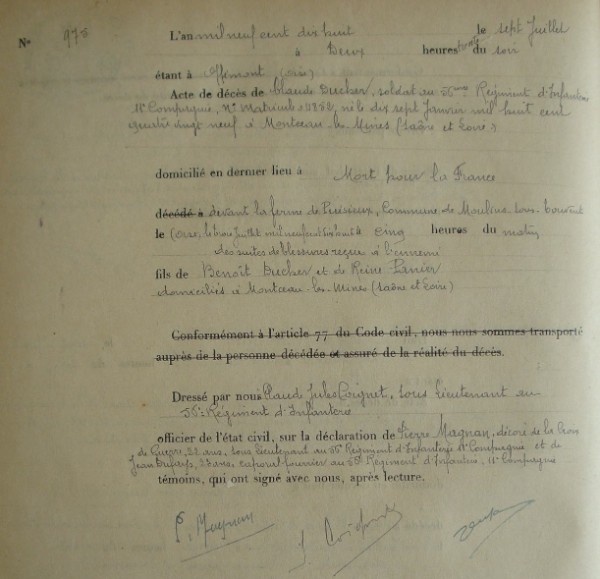 N° 975
L'an mil neuf cent dix huit le sept Juillet
à Deux heures trente du soir
étant à (Oise)
Acte de décès de Claude Ducher, soldat au 56ème Régiment d'Infanterie
11e Compagnie, N° Matricule né le dix sept Janvier mil huit cent
quatre vingt neuf à Montceau-les-Mines (Saône et Loire)
domicilié en dernier lieu à Mort pour la France
décédé à devant la ferme de Puisieux, Commune de Moulin-sous-Touvent
le (Oise, le Juillet mil neuf cent dix huit à cinq heures du matin
des suites de blessures reçues à l'ennemi
fils de Benoît Ducher et de Reine
domiciliés à Montceau-les-Mines (Saône et Loire)
Conformément à l'article 77 du Code civil, nous nous sommes transporté
auprès de la personne décédée et assuré de la réalité du décès.
Dressé par nous Claude Jules Coignet, sous lieutenant au
56e Régiment d'Infanterie
officier de l'état civil, sur la déclaration de Pierre Magnan, décoré de la Croix
de Guerre, ans, sous lieutenant au 56e Régiment d'Infanterie 11e Compagnie et de
Jean 23 ans, caporal fourrier au 56e Régiment d'Infanterie, 11e Compagnie
témoins, qui ont signé avec nous, après lecture.
P. Magnan